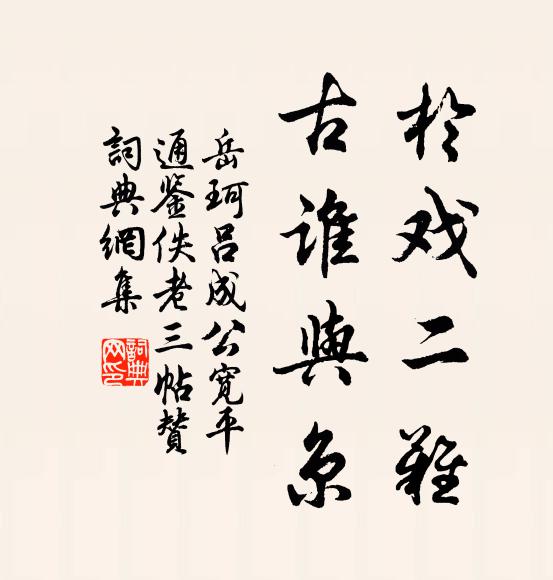 於戏二难
古谁與京
岳珂吕成公宽平
通鉴佚老三帖赞
詞典網集
詞典網印